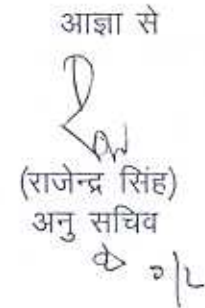 आज्ञा से
(राजेन्द्र सिंह)
अनु सचिव